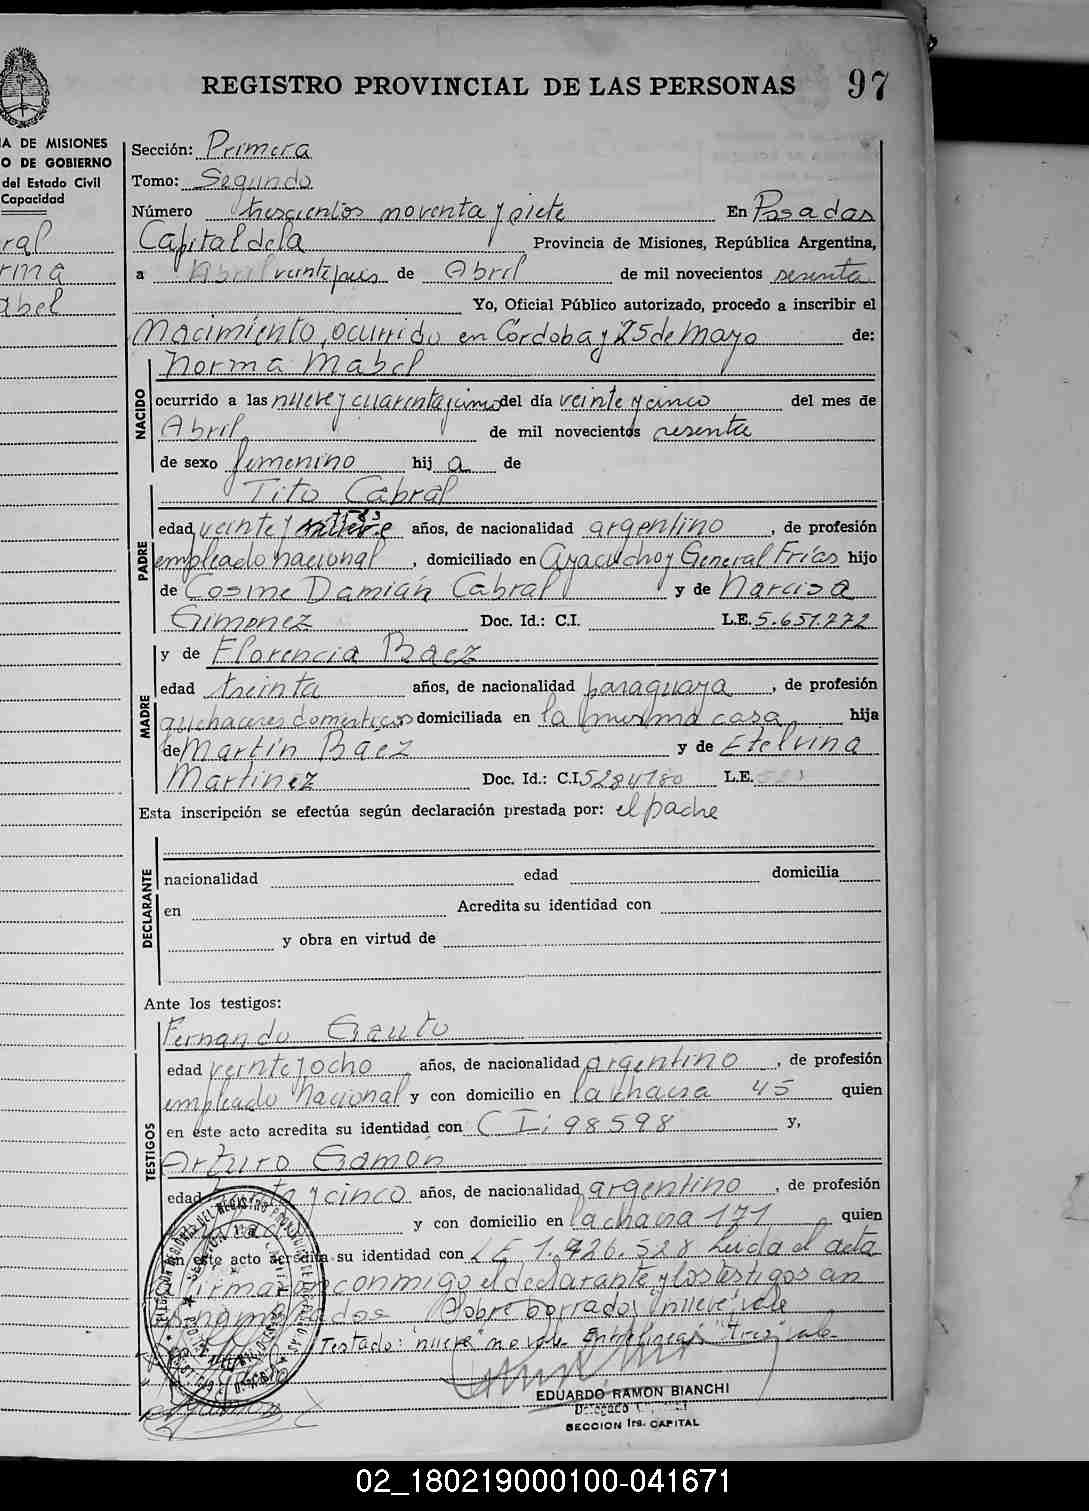 REGISTRO PROVINCIAL DE LAS PERSONAS 97
A DE MISIONES
O DE GOBIERNO
del Estado Civil
Capacidad
ral
rma
abel
Sección: Primera
Tomo: Segundo
Número trescientos noventa y siete En Posadas
Capital de la Provincia de Misiones, República Argentina,
a Abril veintiseis de Abril de mil novecientos sesenta
Yo, Oficial Público autorizado, procedo a inscribir el
Nacimiento, ocurrido en Córdoba y 25 de Mayo de:
NACIDO
Norma Mabel
ocurrido a las nueve y cuarenta y cinco del día veinte y cinco del mes de
Abril de mil novecientos sesenta
de sexo femenino hij a de
PADRE
Tito Cabral
edad veinte y nueve tres años, de nacionalidad argentino, de profesión
empleado nacional, domiciliado en Ayacucho y General Frías hijo
de Cosme Damián Cabral y de Narcisa
Gimenez Doc. Id.: C.I. L.E. 5.651.772
MADRE
y de Florencia Baez
edad treinta años, de nacionalidad paraguaya, de profesión
quehaceres domésticos domiciliada en la misma casa hija
de Martín Baéz y de Etelvina
Martinez Doc. Id.: C.I. 5284780 L.E.
Esta inscripción se efectúa según declaración prestada por: el padre
DECLARANTE
nacionalidad edad domicilia
en Acredita su identidad con
y obra en virtud de
Ante los testigos:
TESTIGOS
Fernando Gauto
edad veinte y ocho años, de nacionalidad argentino, de profesión
empleado nacional y con domicilio en la chacra 45 quien
en este acto acredita su identidad con C I: 98598 y,
Arturo Gamón
edad y cinco años, de nacionalidad argentino, de profesión
y con domicilio en la chacra 171 quien
en este acto acredita su identidad con L E 1.426.528 Leida el acta
firman conmigo el declarante y los testigos an
Sobre borrado: "nueve" vale
Testado: "nueve" no vale Entrelíneas "tres" vale
EDUARDO RAMON BIANCHI
Delegado
SECCION 1ra. CAPITAL
Gamón
02_180219000100-041671